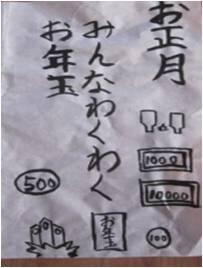 お正月
みんなわくわく
お年玉
1000
10000
100
お年玉
500